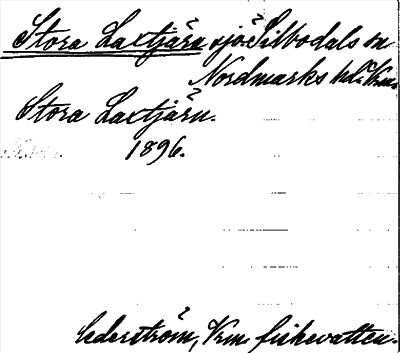 Stora Laxtjärn sjö i Silbodals sn
Nordmarks hd. Vrm.
Stora Laxtjärn.
1896.
Cederström, Vrm. fiskevatten.